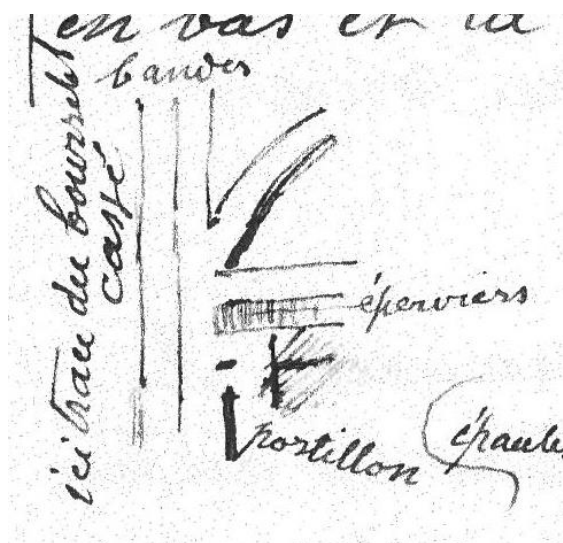 en bas et la
bandes
ici trace du bourrelet
cassé
éperviers
portillon
épaule